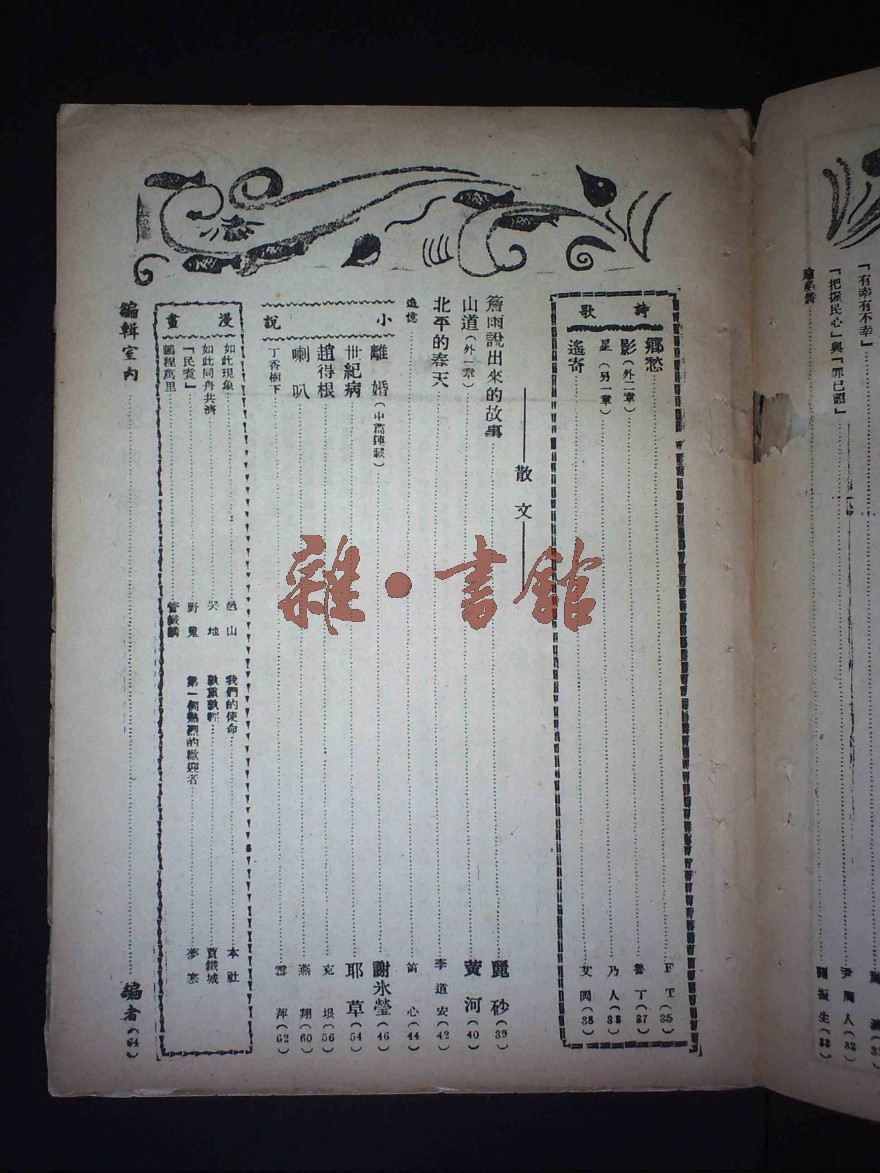 「有幸有不幸」
「把握民心」與「罪己詔」 尹周人(33)
詩歌
鄉愁 F T(35)
影(外二章) 魯丁(37)
星(另一章) 乃人(38)
遙寄 艾閔(38)
散文
簷雨說出來的故事 麗砂(39)
山道(外一章) 黃河(40)
北平的春天 李道安(42)
追憶 笛心(44)
小說
離婚(中篇連載) 謝冰瑩(46)
世紀病 耶草(54)
趙得根 克垠(56)
喇叭 燕翔(60)
丁香樹下 雪萍(62)
漫畫
如此現象 山
如此同舟共濟 天地
「民賓」 野鬼
鵬程萬里 管鐵麟
我們的使命 本社
孰重孰輕 賈鐵城
第一個熱烈的歡迎者 夢寒
編輯室內 編者(64)
雜·書館